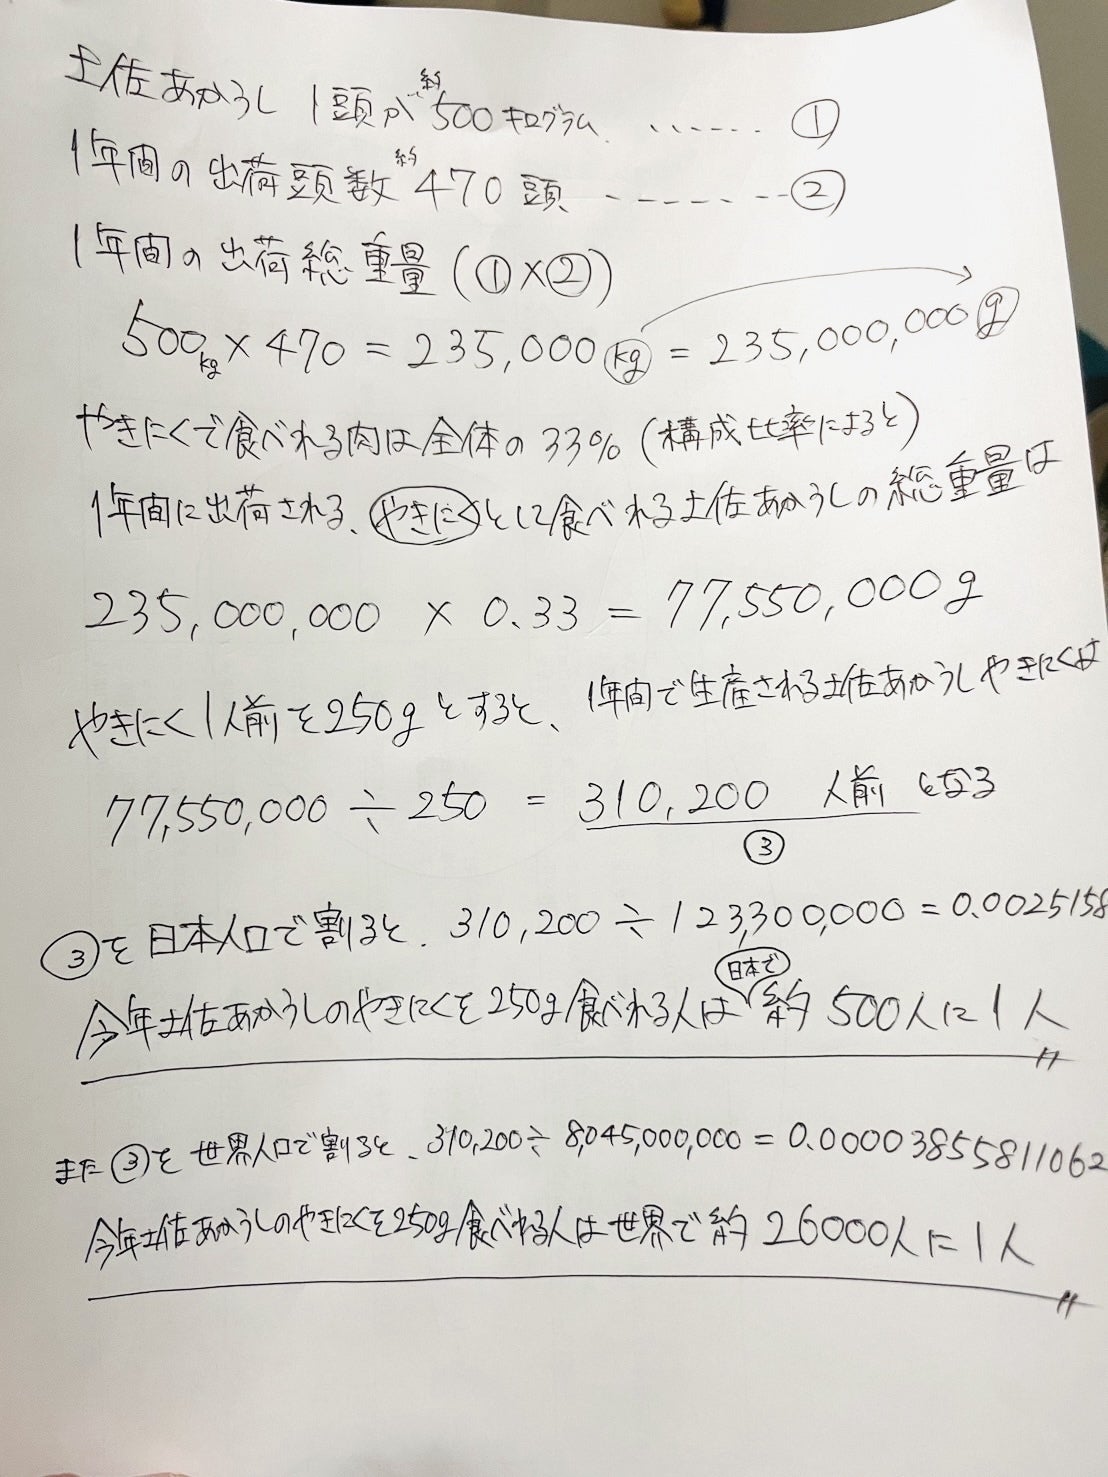 土佐あかうし 1頭が約500キログラム ...... ①
1年間の出荷頭数約470頭 ------- ②
1年間の出荷総重量 (①×②)
500kg × 470 = 235,000kg = 235,000,000g
やきにくで食べれる肉は全体の33% (構成比率によると)
1年間に出荷される、やきにくとして食べれる土佐あかうしの総重量は
235,000,000 × 0.33 = 77,550,000g
やきにく1人前を250gとすると、1年間で生産される土佐あかうしやきにくは
77,550,000 ÷ 250 = 310,200 人前 となる
③
③を日本人口で割ると、310,200 ÷ 123,300,000 = 0.0025158
今年土佐あかうしのやきにくを250g食べれる人は日本で約500人に1人
また③を世界人口で割ると、310,200 ÷ 8,045,000,000 = 0.00003855811062
今年土佐あかうしのやきにくを250g食べれる人は世界で約26000人に1人